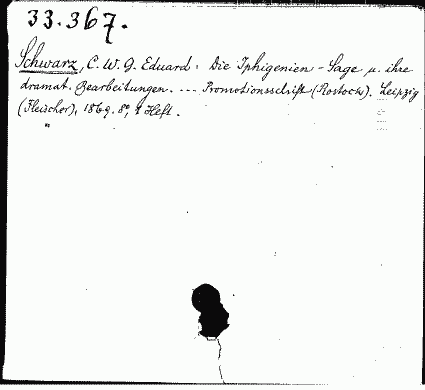 33.367.
Schwarz, C. W. G. Eduard: Die Iphigenien-Sage u. ihre
dramat. Bearbeitungen. --- Promotionsschrift (Rostock). Leipzig
(Fleischer), 1869. 8°, 1 Heft.
"